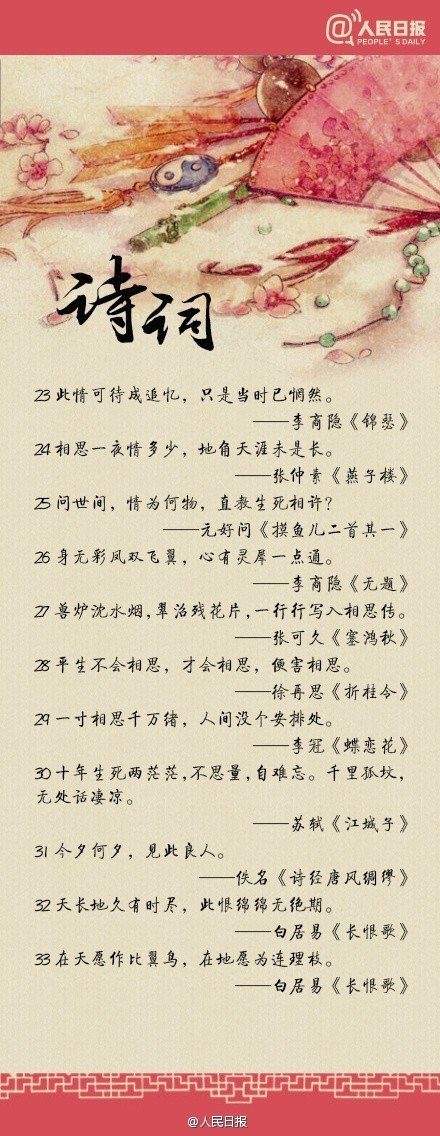 @人民日报
PEOPLE'S DAILY
诗词
23 此情可待成追忆，只是当时已惘然。
——李商隐《锦瑟》
24 相思一夜情多少，地角天涯未是长。
——张仲素《燕子楼》
25 问世间，情为何物，直教生死相许？
——元好问《摸鱼儿二首其一》
26 身无彩凤双飞翼，心有灵犀一点通。
——李商隐《无题》
27 兽炉沈水烟，翠沼残花片，一行行写入相思传。
——张可久《塞鸿秋》
28 平生不会相思，才会相思，便害相思。
——徐再思《折桂令》
29 一寸相思千万绪，人间没个安排处。
——李冠《蝶恋花》
30 十年生死两茫茫，不思量，自难忘。千里孤坟，
无处话凄凉。
——苏轼《江城子》
31 今夕何夕，见此良人。
——佚名《诗经唐风绸缪》
32 天长地久有时尽，此恨绵绵无绝期。
——白居易《长恨歌》
33 在天愿作比翼鸟，在地愿为连理枝。
——白居易《长恨歌》
@人民日报